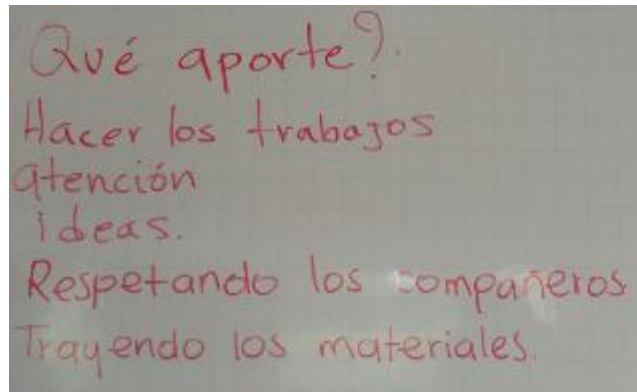 Qué aporte?.
Hacer los trabajos
atención
ideas.
Respetando los compañeros
Trayendo los materiales.